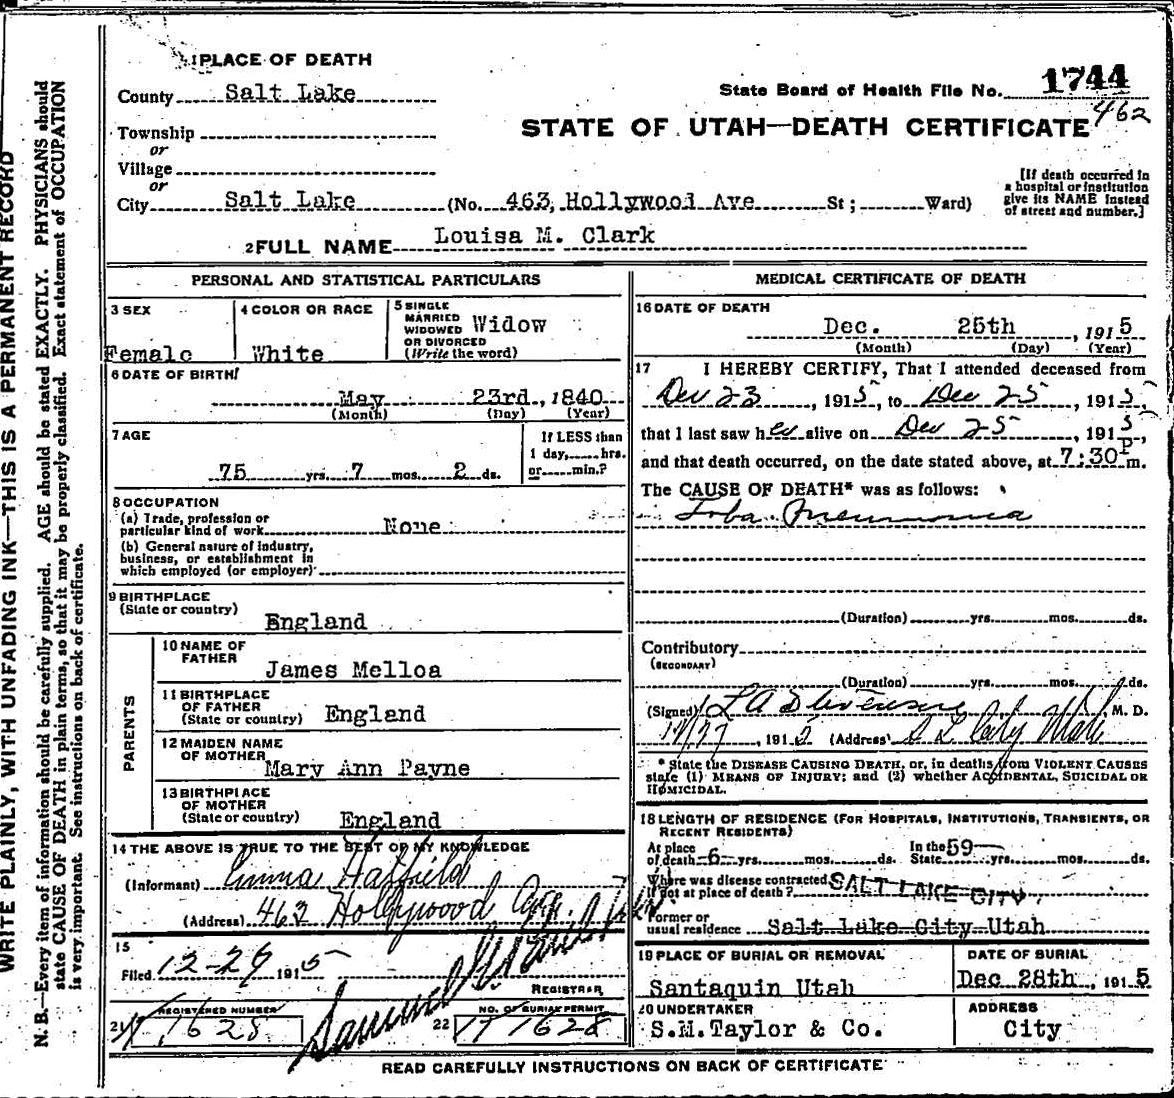 1 PLACE OF DEATH
County Salt Lake
State Board of Health File No. 1744
462
Township
or
Village
or
STATE OF UTAH—DEATH CERTIFICATE
City Salt Lake (No. 463, Hollywood Ave St; Ward)
[If death occurred in
a hospital or institution
give its NAME instead
of street and number.]
2 FULL NAME Louisa M. Clark
PERSONAL AND STATISTICAL PARTICULARS
3 SEX
Female
4 COLOR OR RACE
White
5 SINGLE
MARRIED
WIDOWED
OR DIVORCED
(Write the word)
Widow
6 DATE OF BIRTH
May 23rd, 1840
(Month) (Day) (Year)
7 AGE
75 yrs. 7 mos. 2 ds.
If LESS than
1 day, hrs.
or min.?
8 OCCUPATION
(a) Trade, profession or
particular kind of work None
(b) General nature of industry,
business, or establishment in
which employed (or employer)
9 BIRTHPLACE
(State or country)
England
PARENTS
10 NAME OF
FATHER
James Melloa
11 BIRTHPLACE
OF FATHER
(State or country) England
12 MAIDEN NAME
OF MOTHER
Mary Ann Payne
13 BIRTHPLACE
OF MOTHER
(State or country) England
14 THE ABOVE IS TRUE TO THE BEST OF MY KNOWLEDGE
(Informant) Emma Hatfield
(Address) 463 Hollywood Ave.
15
Filed 12-26 1915
Samuel G. Paul
REGISTRAR
21 REGISTERED NUMBER
1628
22 NO. OF BURIAL PERMIT
1628
MEDICAL CERTIFICATE OF DEATH
16 DATE OF DEATH
Dec. 25th, 1915
(Month) (Day) (Year)
17 I HEREBY CERTIFY, That I attended deceased from
Dec 23, 1915, to Dec 25, 1915,
that I last saw her alive on Dec 25, 1915,
and that death occurred, on the date stated above, at 7:30 P m.
The CAUSE OF DEATH* was as follows:
Loba Pneumonia
(Duration) yrs. mos. ds.
Contributory
(SECONDARY)
(Duration) yrs. mos. ds.
(Signed) L A Stevenson, M. D.
12/27, 1915 (Address) S L City Utah
* State the DISEASE CAUSING DEATH, or, in deaths from VIOLENT CAUSES
state (1) MEANS OF INJURY; and (2) whether ACCIDENTAL, SUICIDAL OR
HOMICIDAL.
18 LENGTH OF RESIDENCE (FOR HOSPITALS, INSTITUTIONS, TRANSIENTS, OR
RECENT RESIDENTS)
At place
of death 6 yrs. mos. ds.
In the
State 59 yrs. mos. ds.
Where was disease contracted
If not at place of death? SALT LAKE CITY.
Former or
usual residence Salt Lake City Utah
19 PLACE OF BURIAL OR REMOVAL
Santaquin Utah
DATE OF BURIAL
Dec 28th, 1915
20 UNDERTAKER
S.M.Taylor & Co.
ADDRESS
City
READ CAREFULLY INSTRUCTIONS ON BACK OF CERTIFICATE
WRITE PLAINLY, WITH UNFADING INK—THIS IS A PERMANENT RECORD
N. B.—Every item of information should be carefully supplied. AGE should be stated EXACTLY. PHYSICIANS should
state CAUSE OF DEATH in plain terms, so that it may be properly classified. Exact statement of OCCUPATION
is very important. See instructions on back of certificate.